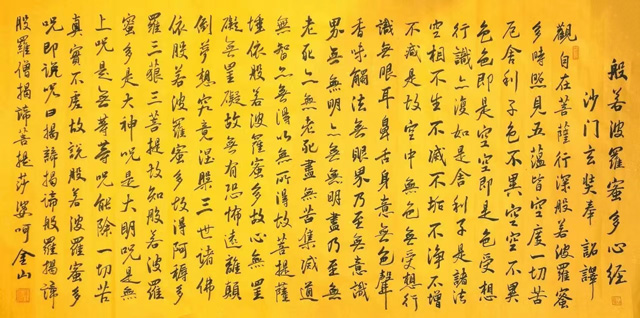 般若波羅蜜多心經
沙门玄奘奉 詔譯
觀自在菩薩行深般若波羅蜜
多時照見五蕴皆空度一切苦
厄舍利子色不異空空不異
色色即是空空即是色受想
行識亦復如是舍利子是諸法
空相不生不滅不垢不净不增
不减是故空中無色無受想行
識無眼耳鼻舌身意無色聲
香味觸法無眼界乃至無意識
界無無明亦無無明盡乃至無
老死亦無老死盡無苦集滅道
無智亦無得以無所得故菩提薩
埵依般若波羅蜜多故心無罣
礙無罣礙故無有恐怖遠離顛
倒夢想究竟涅槃三世诸佛
依般若波羅蜜多故得阿耨多
羅三藐三菩提故知般若波羅
蜜多是大神咒是大明咒是無
上咒是無等等咒能除一切苦
真實不虚故說般若波羅蜜多
咒即說咒曰揭諦揭諦般羅揭諦
般羅僧揭諦菩提莎婆呵 金山